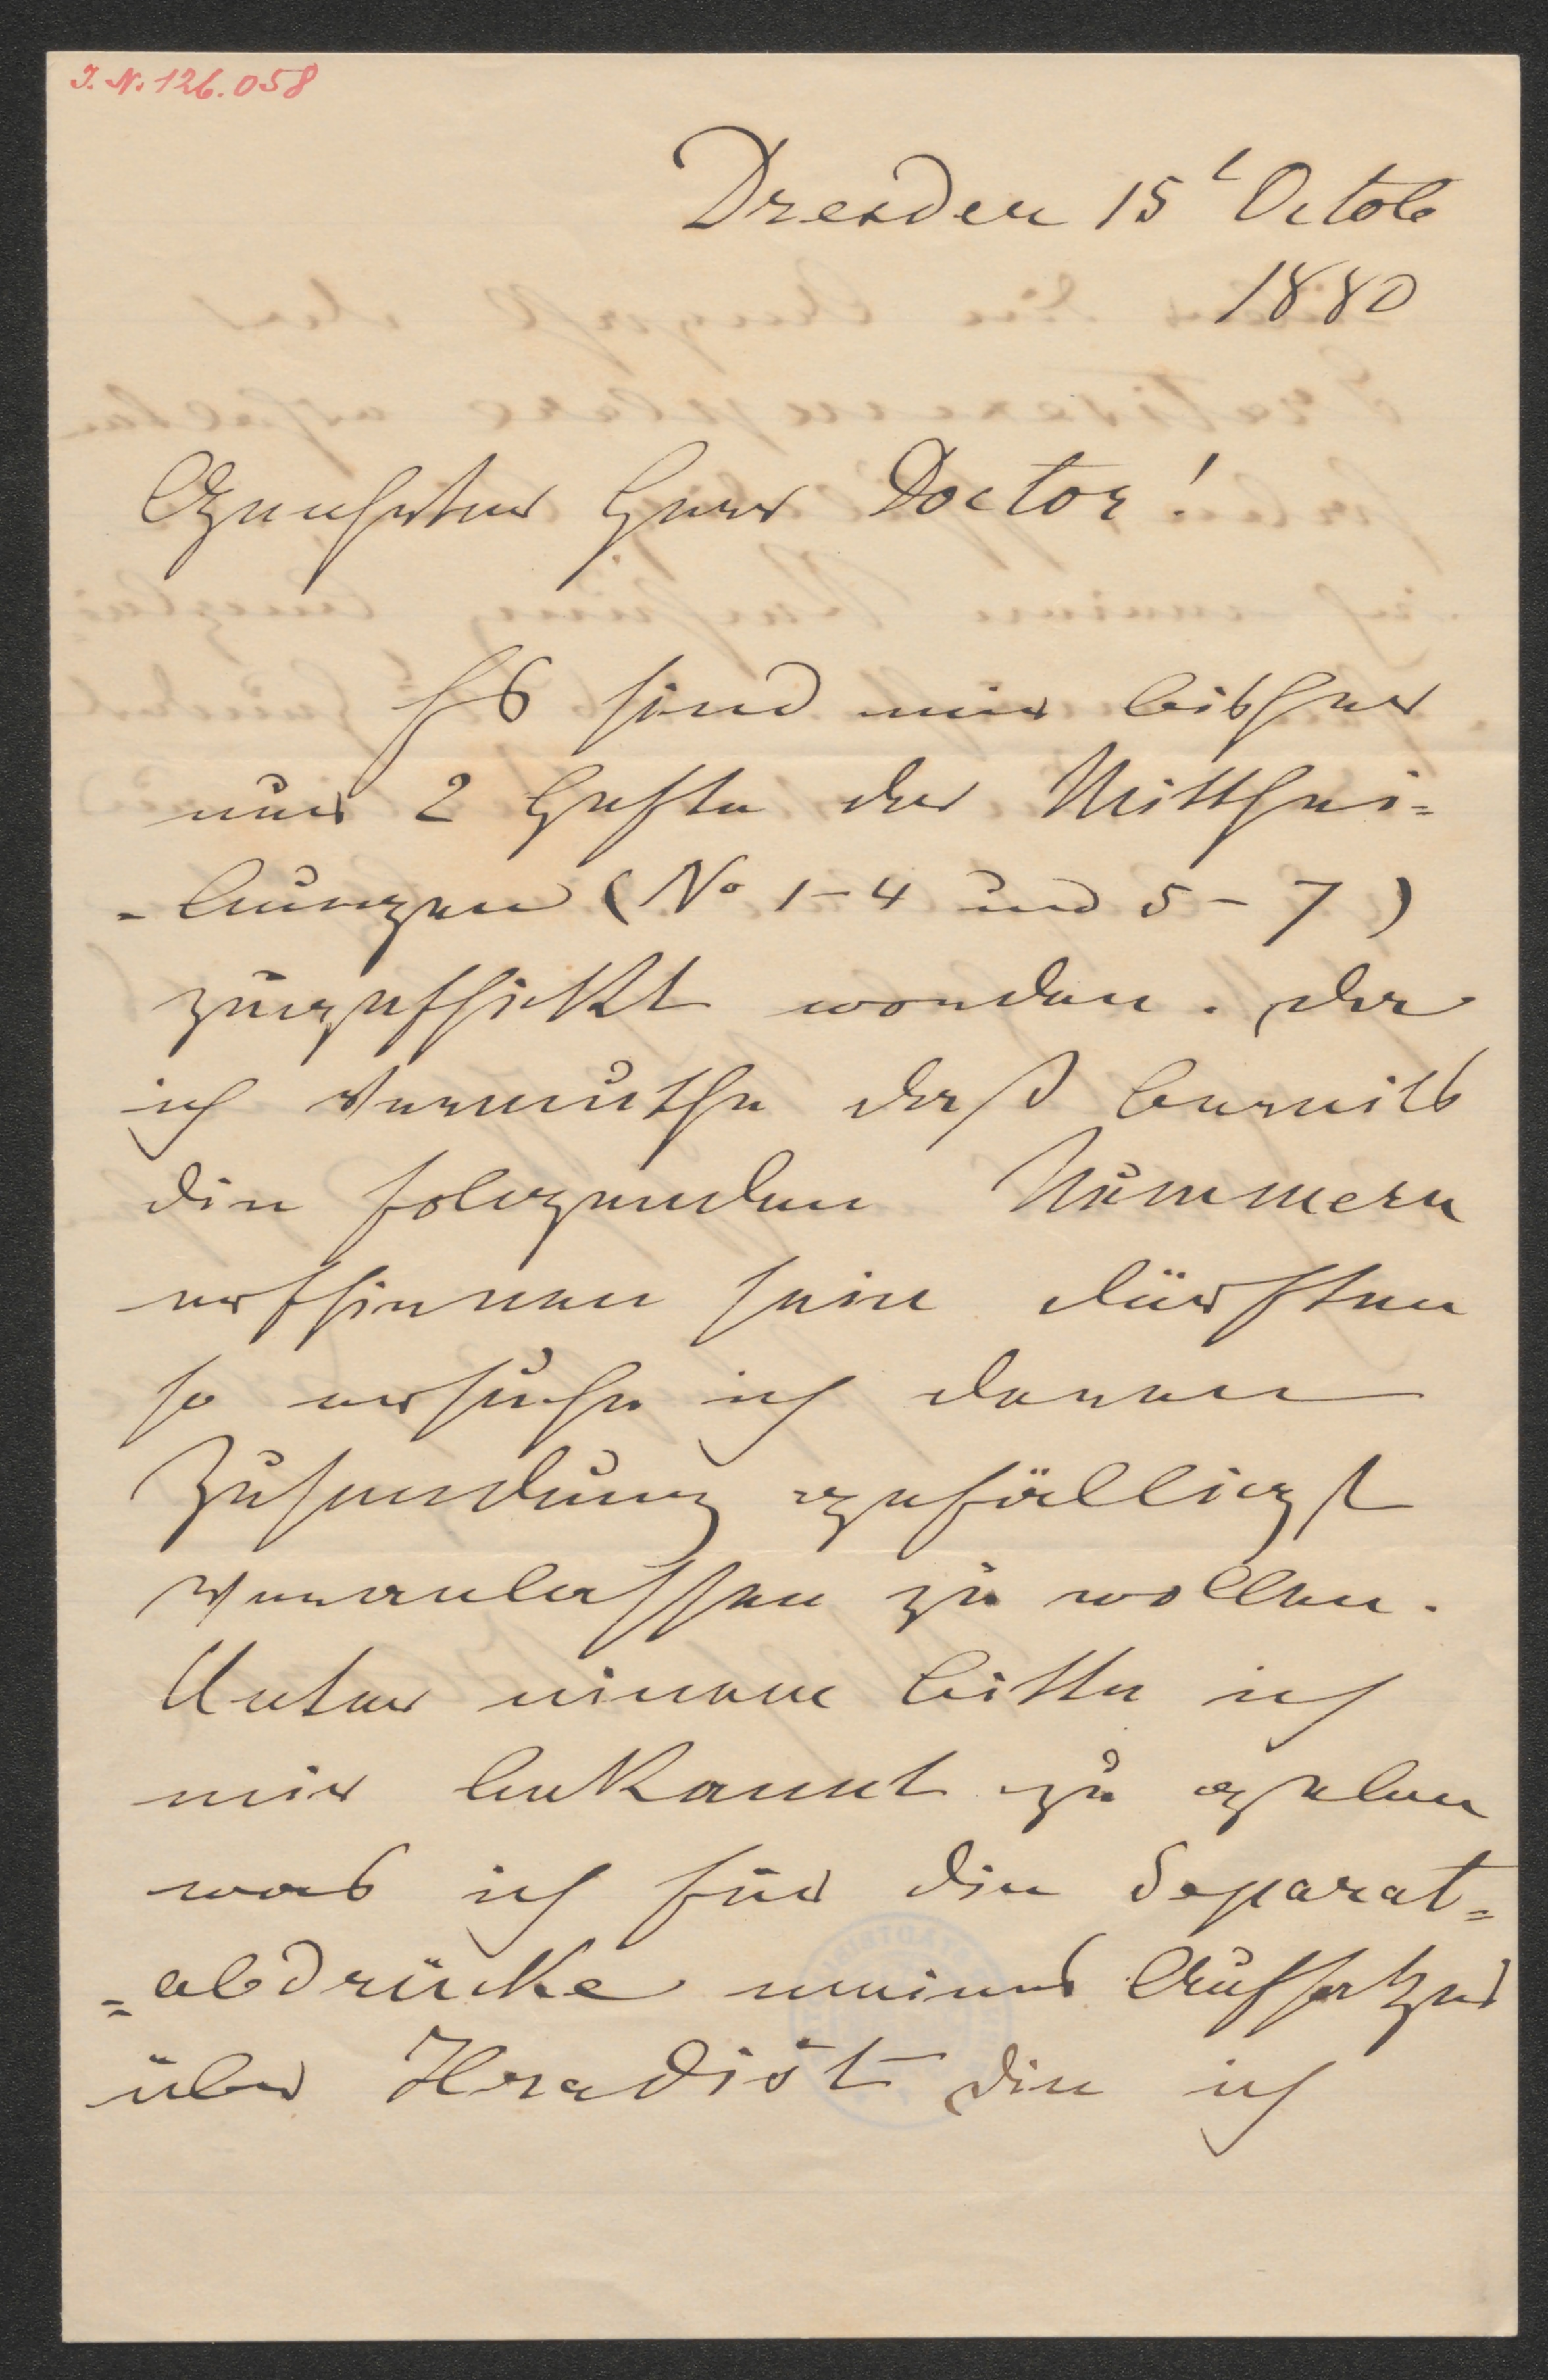 J. N. 126.058
Dresden 15t Octob
1880
Geehrter Herr Doctor!
Es sind mir bisher
nur 2 Hefte der Mitthei=
-lungen (No 1-4 und 5-7)
zugeschikt worden. Da
ich vermuthe daß bereits
die folgenden Nummern
erschienen sein dürften
so ersuche ich deren
Zusendung gefälligst
veranlassen zu wollen.
Unter einem bitte ich
mir bekannt zu geben
was ich für die Separat=
=abdrücke meines Aufsatzes
über Hradišt die ich